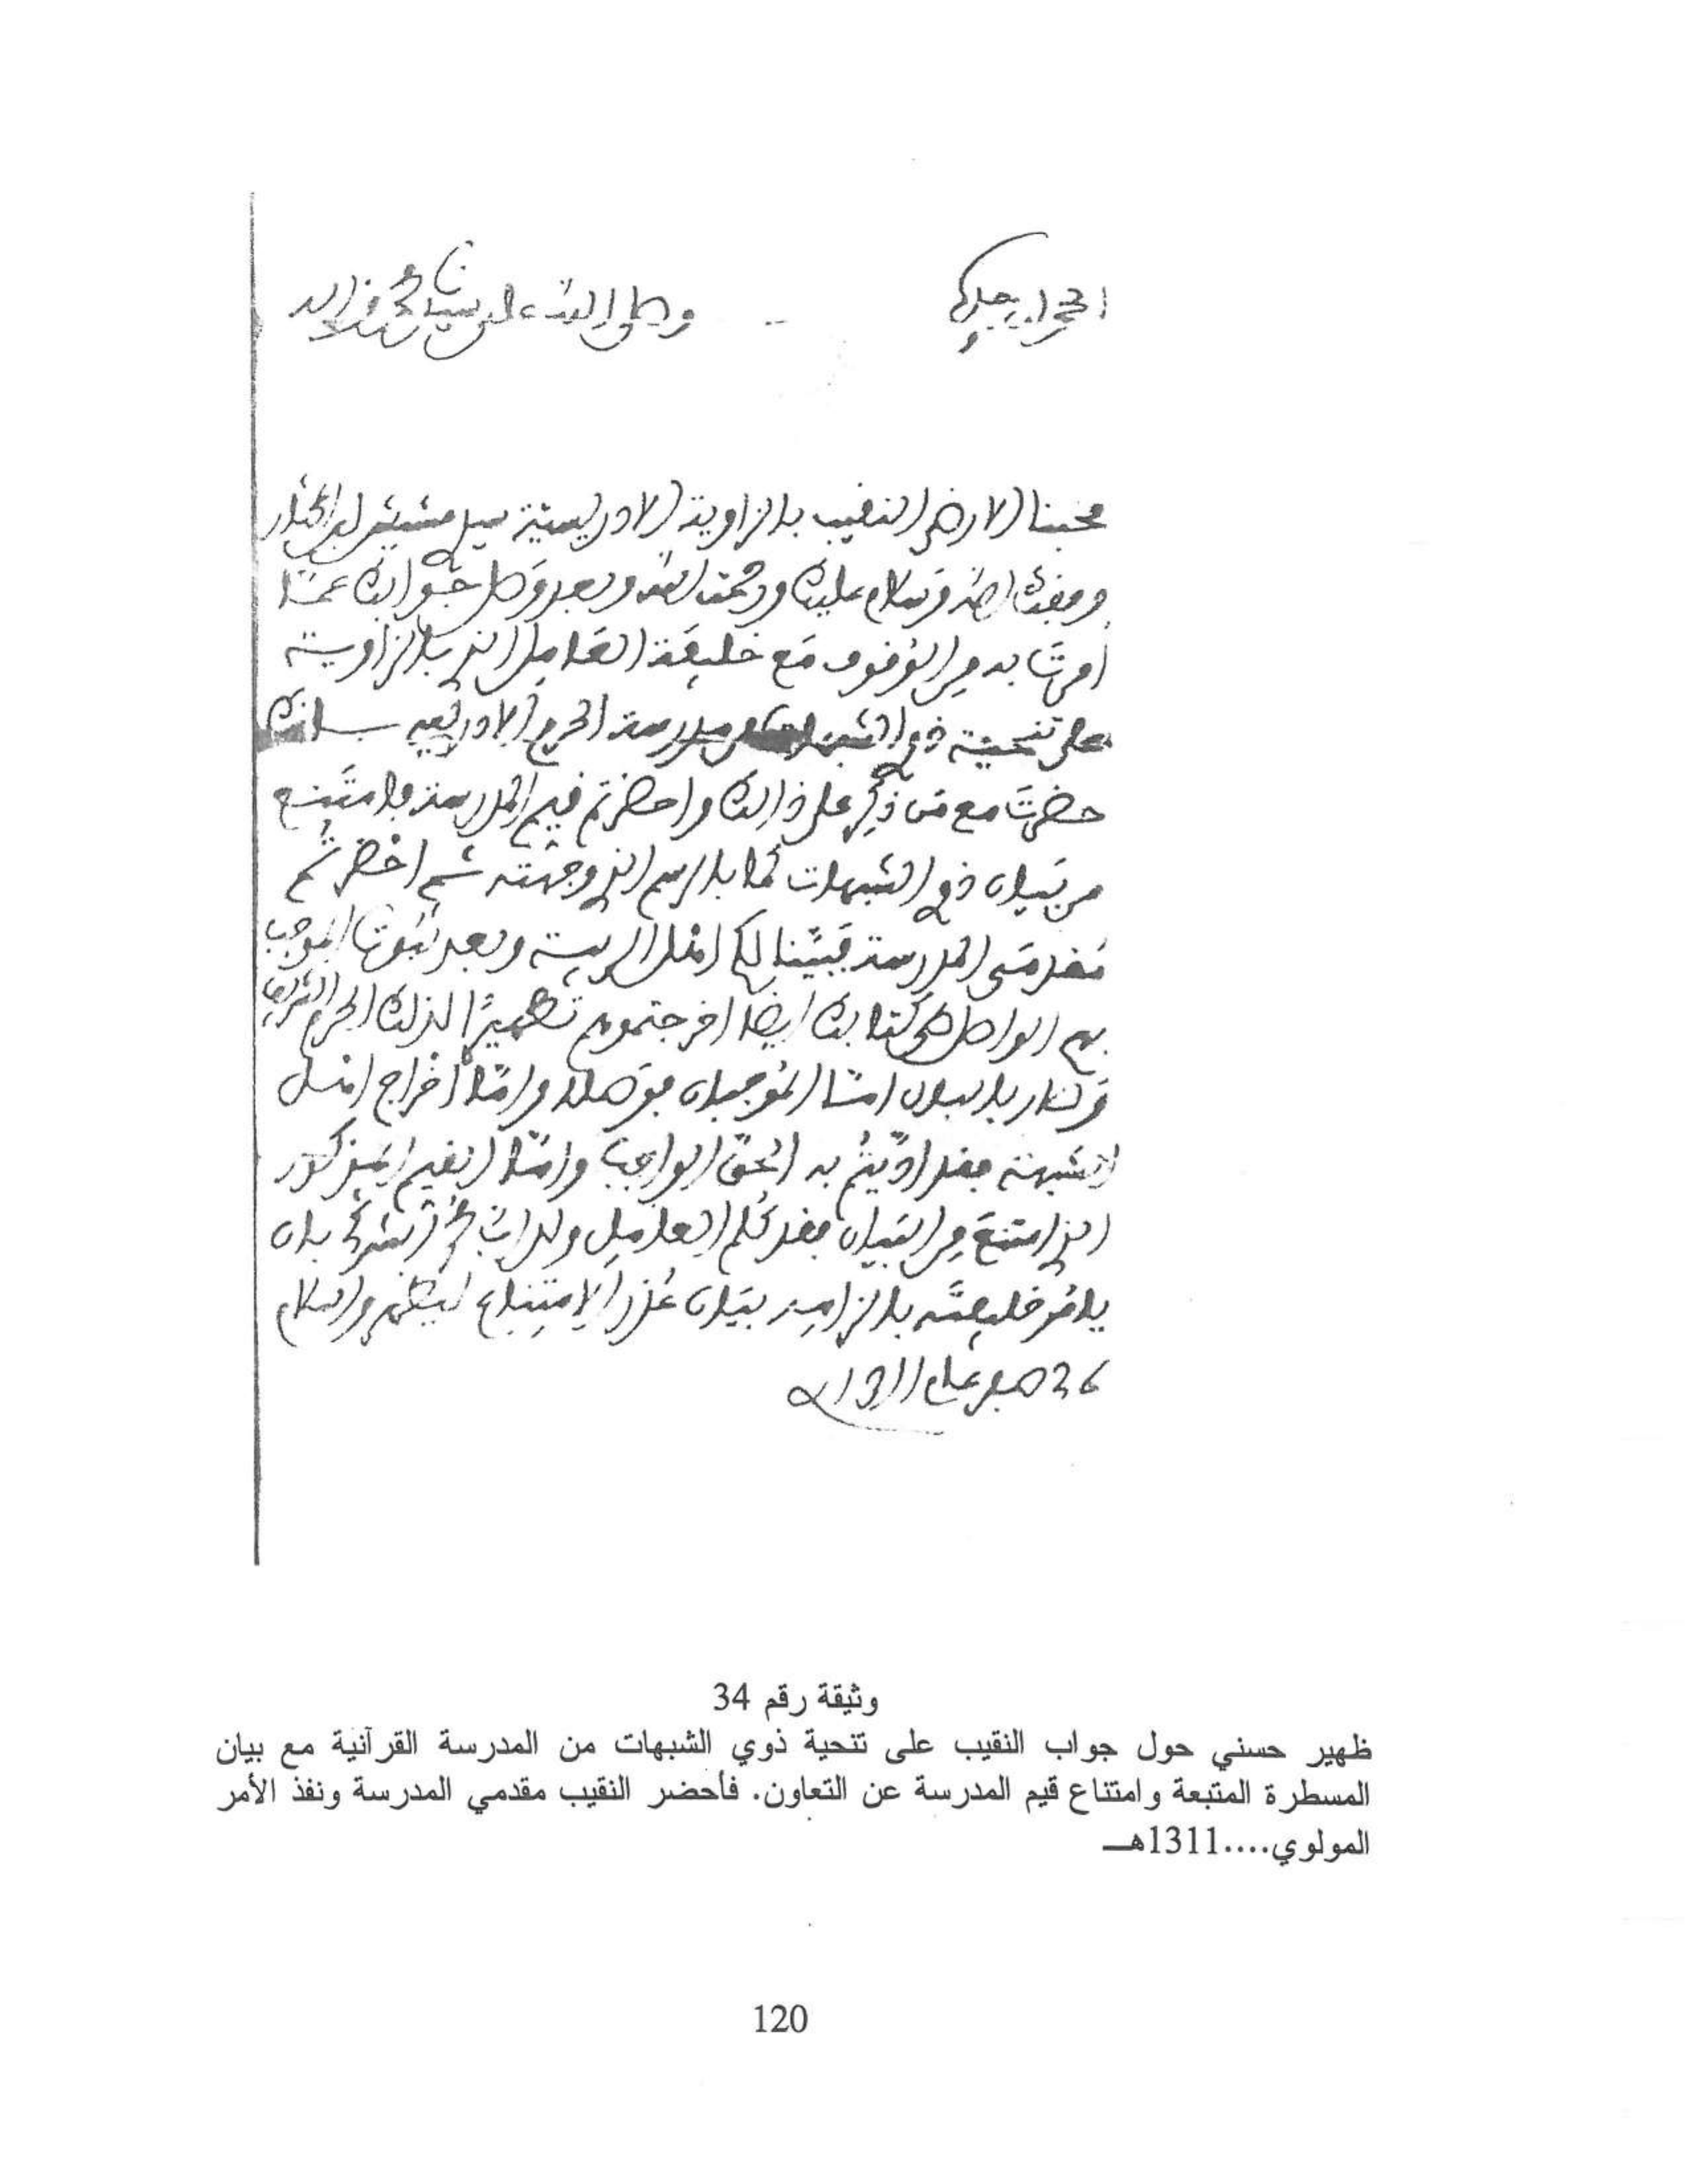 الحمد لله وحده
وصلى الله على سيدنا محمد وآله
محبنا الارضى النقيب بالزاوية الادريسية سيدي مشيش
وفقك الله وسلام عليك ورحمت الله وبعد وصل جوابك عما
امرت به من الوقوف مع خليفة العامل الذي بالزاوية
على تنحية ذوي الشبهات من مدرسة الحرم الادريسي بانك
حضرت مع من ذكر على ذالك واحضرتم قيم المدرسة فامتنع
من بيان ذوي الشبهات كما بالرسم الذي وجهته ثم احضرتم
مقدمي المدرسة فبينا لكم اهل الريبة وبعد ثبوت الموجب
بهم الواصل طي كتابك ايضا اخرجتموهم تطهيرا لذلك الحرم الشريف
وصار بالبال اما الموجبان فوصلا واما اخراج اهل
الشبهة فقد اديتم به الحق الواجب واما القيم المذكور
الذي امتنع من البيان فقد كلم العامل ولد اب محمد الشركي بان
يامر خليفته بالزامه بيان عذر الامتناع ليظهر والسلام
26 صفر عام 1311
وثيقة رقم 34
ظهير حسني حول جواب النقيب على تنحية ذوي الشبهات من المدرسة القرآنية مع بيان
المسطرة المتبعة وامتناع قيم المدرسة عن التعاون. فأحضر النقيب مقدمي المدرسة ونفذ الأمر
المولوي....1311هـ
120